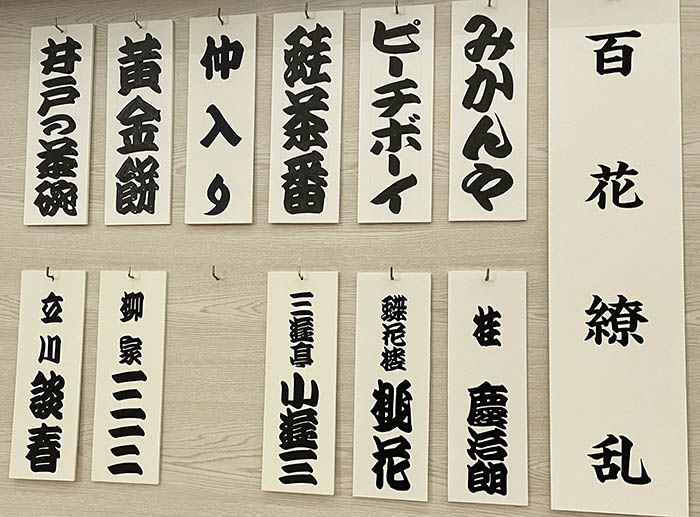 百花繚乱
みかんや
桂 慶治朗
ピーチボーイ
蝶花楼 桃花
蛙茶番
三遊亭 小遊三
仲入り
黄金餅
柳家 三三
井戸の茶碗
立川 談春